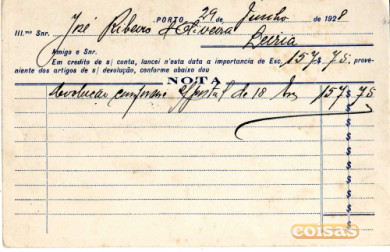 PORTO, 29 de Junho de 1928
Ill.mo Snr. José Ribeiro d'Oliveira
Leiria
Amigo e Snr.
Em credito de s/ conta, lancei n'esta data a importancia de Esc. 157$75, prove-
niente dos artigos de s/ devolução, conforme abaixo dou
NOTA
devolução conforme s/ postal de 18 157$75
$
$
$
$
$
$
coisas